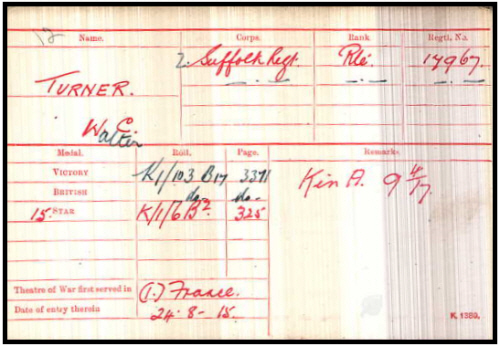 Name. Corps. Rank Regtl. No.
2. Suffolk Regt. Pte. 17967.
TURNER.
W C.
Walter
Medal. Roll. Page. Remarks.
VICTORY K1/103 B17 3371
BRITISH do- do-
15 STAR K/1/6 B2. 325
Kin A. 9 4/17.
Theatre of War first served in (1.) France.
Date of entry therein 24-8-15.
K. 1380.